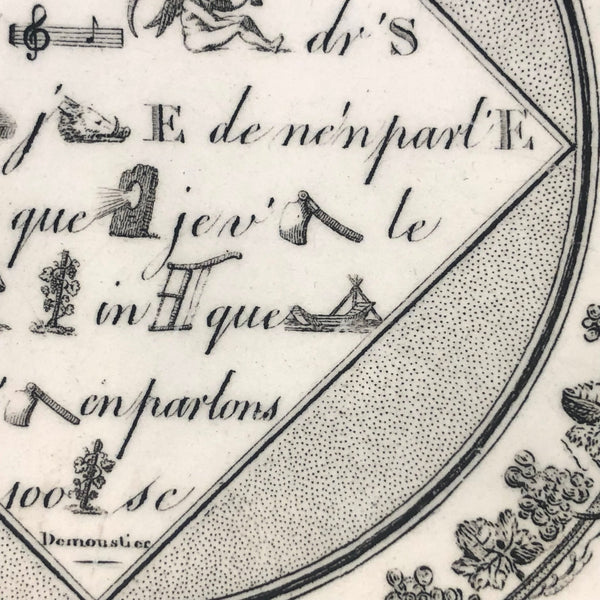 dr'S
j' E de nén parl'E
que je v' le
in que
en parlons
100 se
Demoustier